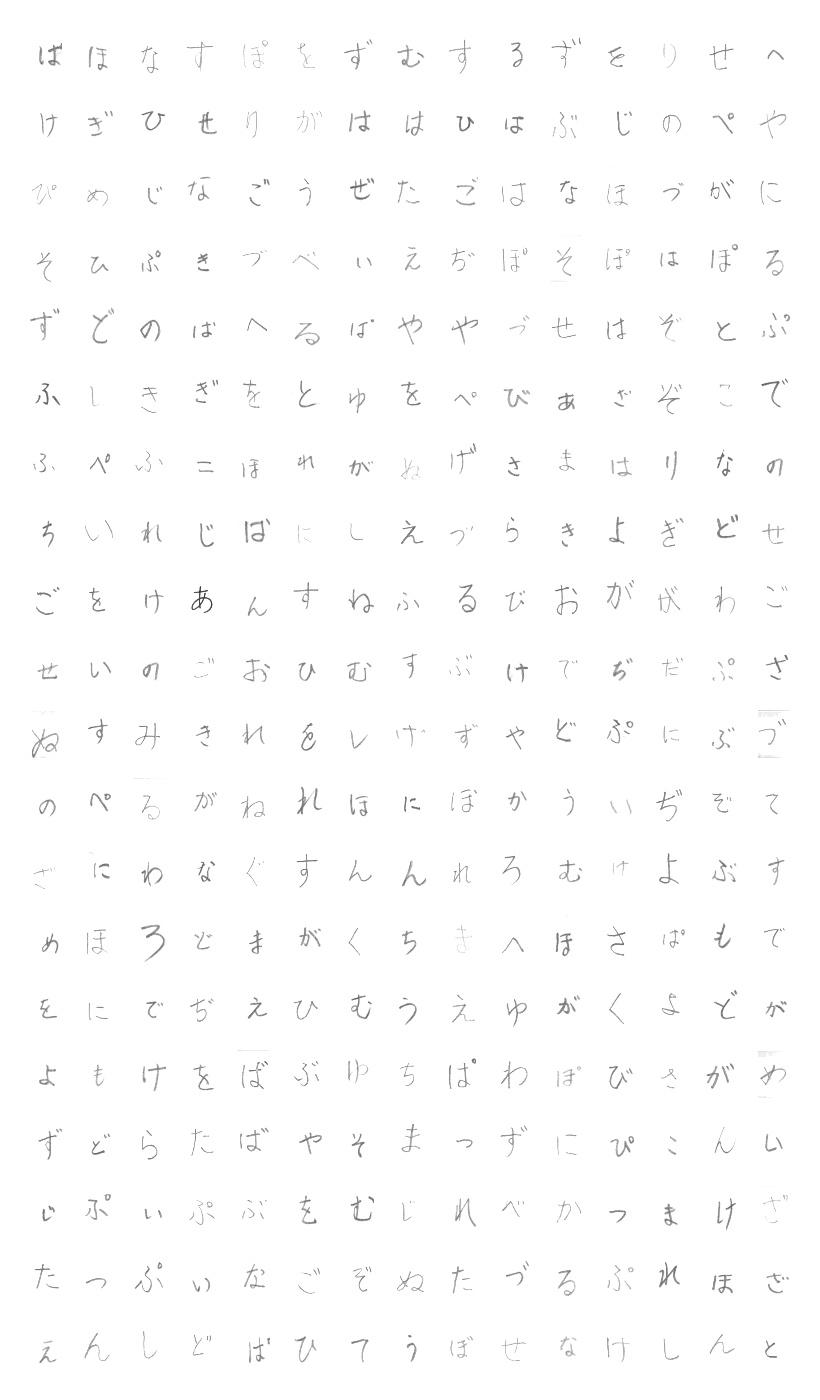 ばほなすぽをずむするずをりせへ
けぎひせりがははひはぶじのぺや
ぴめじなごうぜたごはなほづがに
そひぷきづべいえぢぽそぽはぽる
ずどのばへるぱややづせはぞとぷ
ふしきぎをとゆをぺびあざぞこで
ふぺふこほれがぬげさまはりなの
ちいれじばにしえづらきよぎどせ
ごをけあんすねふるびおががわご
せいのごおひむすぶけでぢだぷざ
ぬすみきれをしげずやどぷにぶづ
のぺるがねれほにぼかういぢぞて
ざにわなぐすんんれろむけよぶす
めほろどまがくちきへほさぱもで
をにでぢえひむうえゆがくよどが
よもけをばぶゆちぱわぽびさがめ
ずどらたばやそまつずにぴこんい
じぷいぷぶをむじれべかつまけざ
たつぷいなごぞぬたづるぷれほざ
えんしどばひてうぼせなけしんと